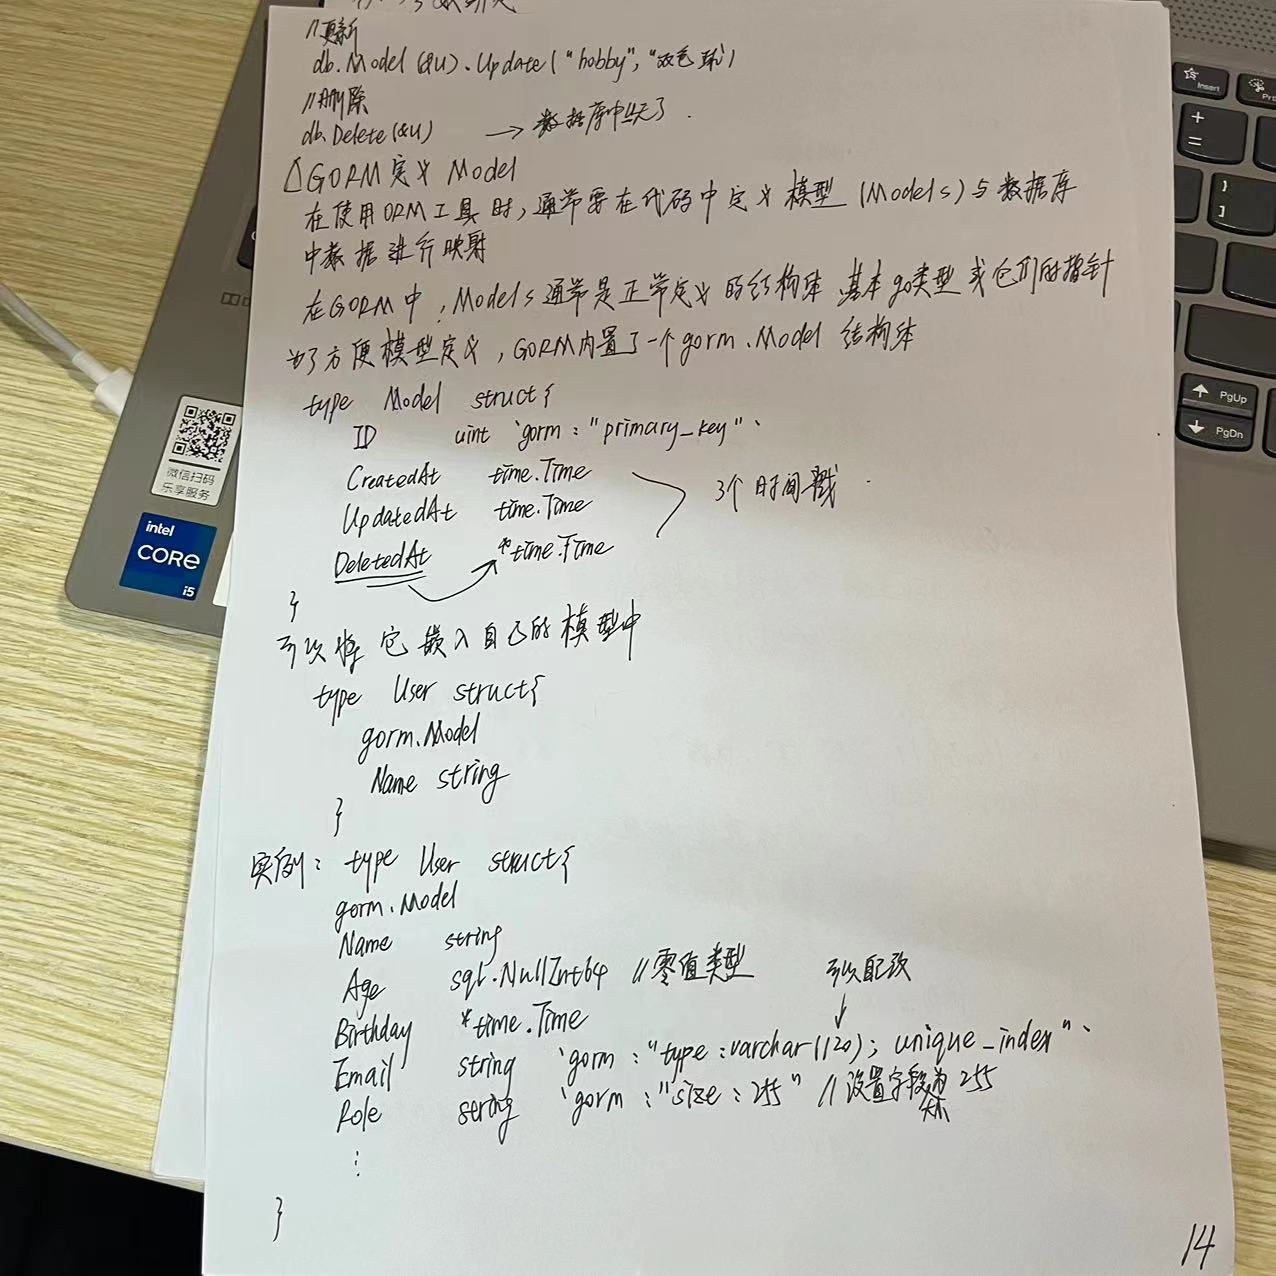 //更新
db.Model(&u).Update("hobby","双色球")
//删除
db.Delete(&u) → 数据库中没了.
△GORM定义 Model
在使用ORM工具时,通常要在代码中定义模型(Models)与数据库
中数据进行映射
在GORM中,Models通常是正常定义的结构体 基本go类型或它们的指针
为了方便模型定义,GORM内置了一个gorm.Model 结构体
type Model struct{
ID uint `gorm:"primary_key"`
CreatedAt time.Time
UpdatedAt time.Time
3个时间戳
DeletedAt *time.Time
}
可以将它嵌入自己的模型中
type User struct{
gorm.Model
Name string
}
实例: type User struct{
gorm.Model
Name string
Age sql.NullInt64 //零值类型
可以配改
Birthday *time.Time
Email string `gorm:"type:varchar(120); unique_index"`
Role string `gorm:"size:255" //设置字段为255
大小
⋮
}
14
Insert
+
=
}
]
PgUp
PgDn
微信扫码
乐享服务
intel
CORE
i5